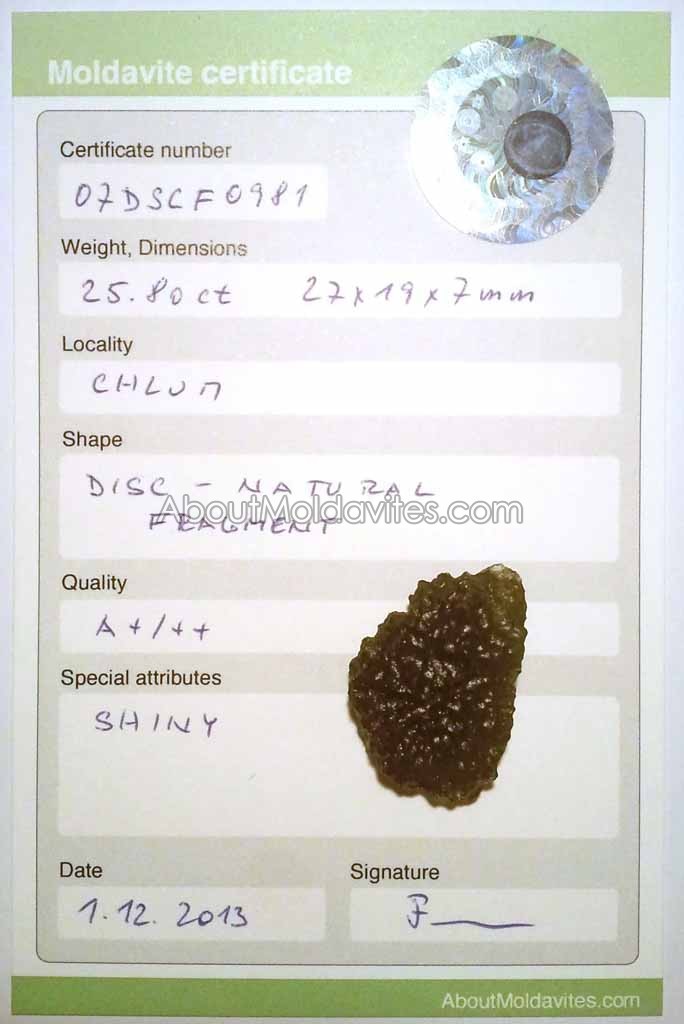 Moldavite certificate
Certificate number
07DSCF0981
Weight, Dimensions
25.80 ct 27x19x7mm
Locality
CHLUM
Shape
DISC - NATURAL
AboutMoldavites.com
FRAGMENT
Quality
A+/++
Special attributes
SHINY
Date
Signature
1.12. 2013
AboutMoldavites.com